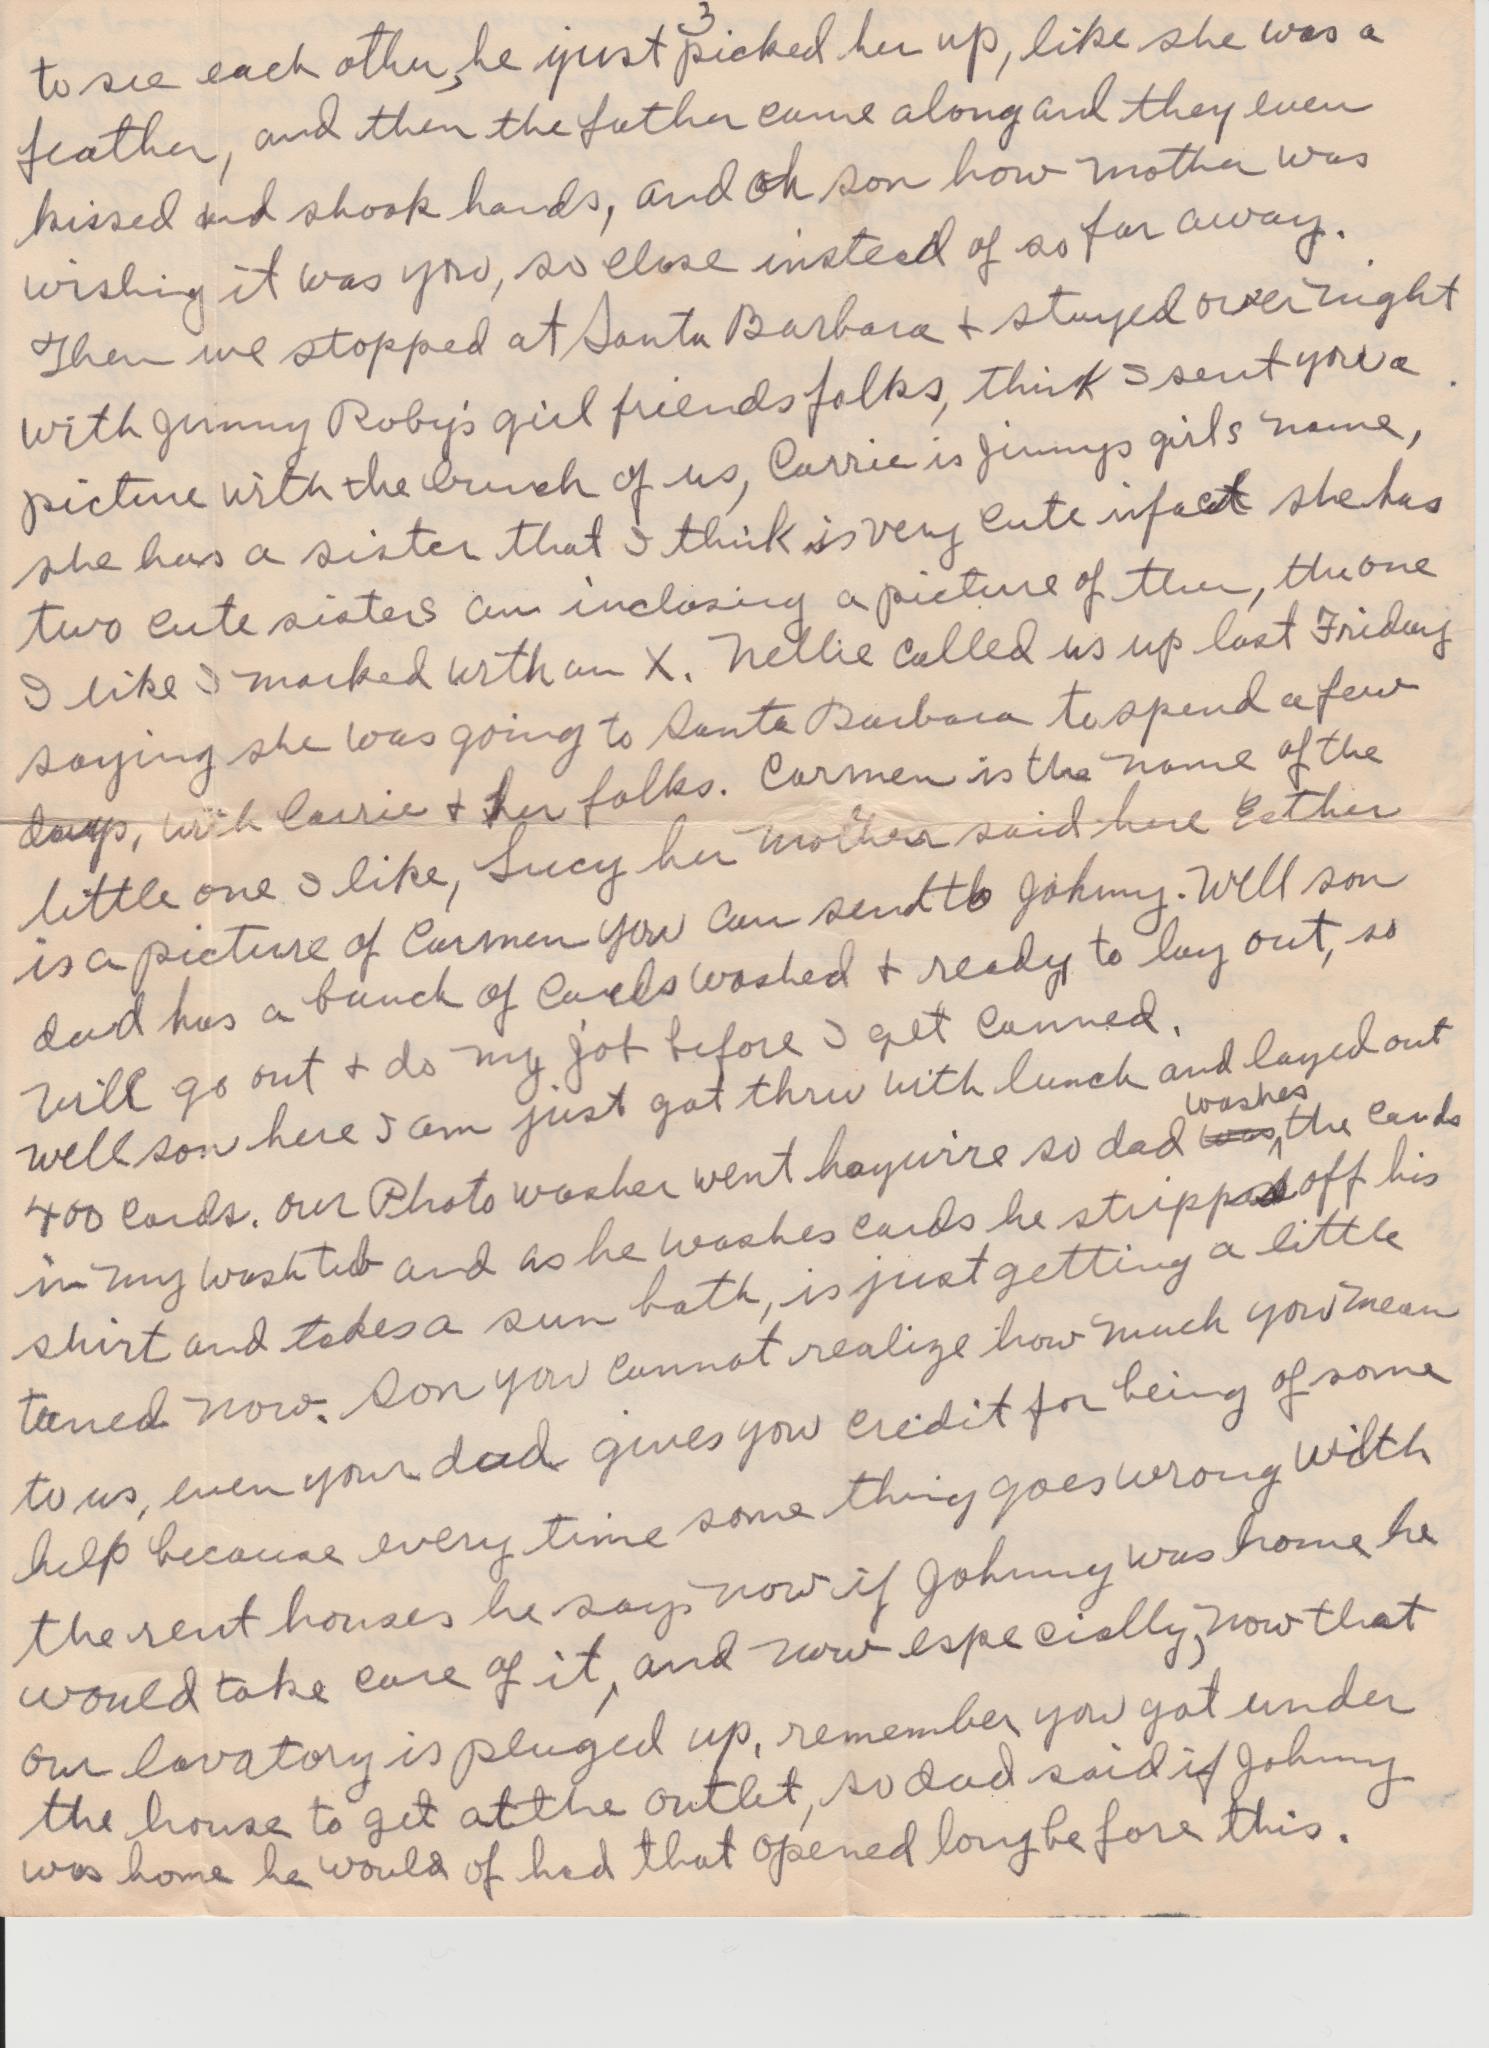 3
to see each other, he just picked her up, like she was a
feather, and then the father came along and they even
kissed and shook hands, and oh son how mother was
wishing it was you, so close instead of so far away.
Then we stopped at Santa Barbara + stayed over night
with Jimmy Roby's girl friends folks, think I sent you a
picture with the bunch of us, Carrie is Jimmys girls name,
she has a sister that I think is very cute infact she has
two cute sisters am inclosing a picture of them, the one
I like I marked with an X. Nellie called us up last Friday
saying she was going to Santa Barbara to spend a few
days, with Carrie + her folks. Carmen is the name of the
little one I like, Lucy her mother said here Esther
is a picture of Carmen you can send to Johnny. Well son
dad has a bunch of cards washed + ready to lay out, so
will go out + do my job before I get canned.
Well son here I am just got thru with lunch and layed out
400 cards. our Photo washer went haywire so dad was washes the cards
in my wash tub and as he washes cards he stripped off his
shirt and takes a sun bath, is just getting a little
tanned now. Son you cannot realize how much you mean
to us, even your dad gives you credit for being of some
help because every time some thing goes wrong with
the rent houses he says now if Johnny was home he
would take care of it, and now especially, now that
our lavatory is pluged up, remember you got under
the house to get at the outlet, so dad said if Johnny
was home he would of had that opened long before this.